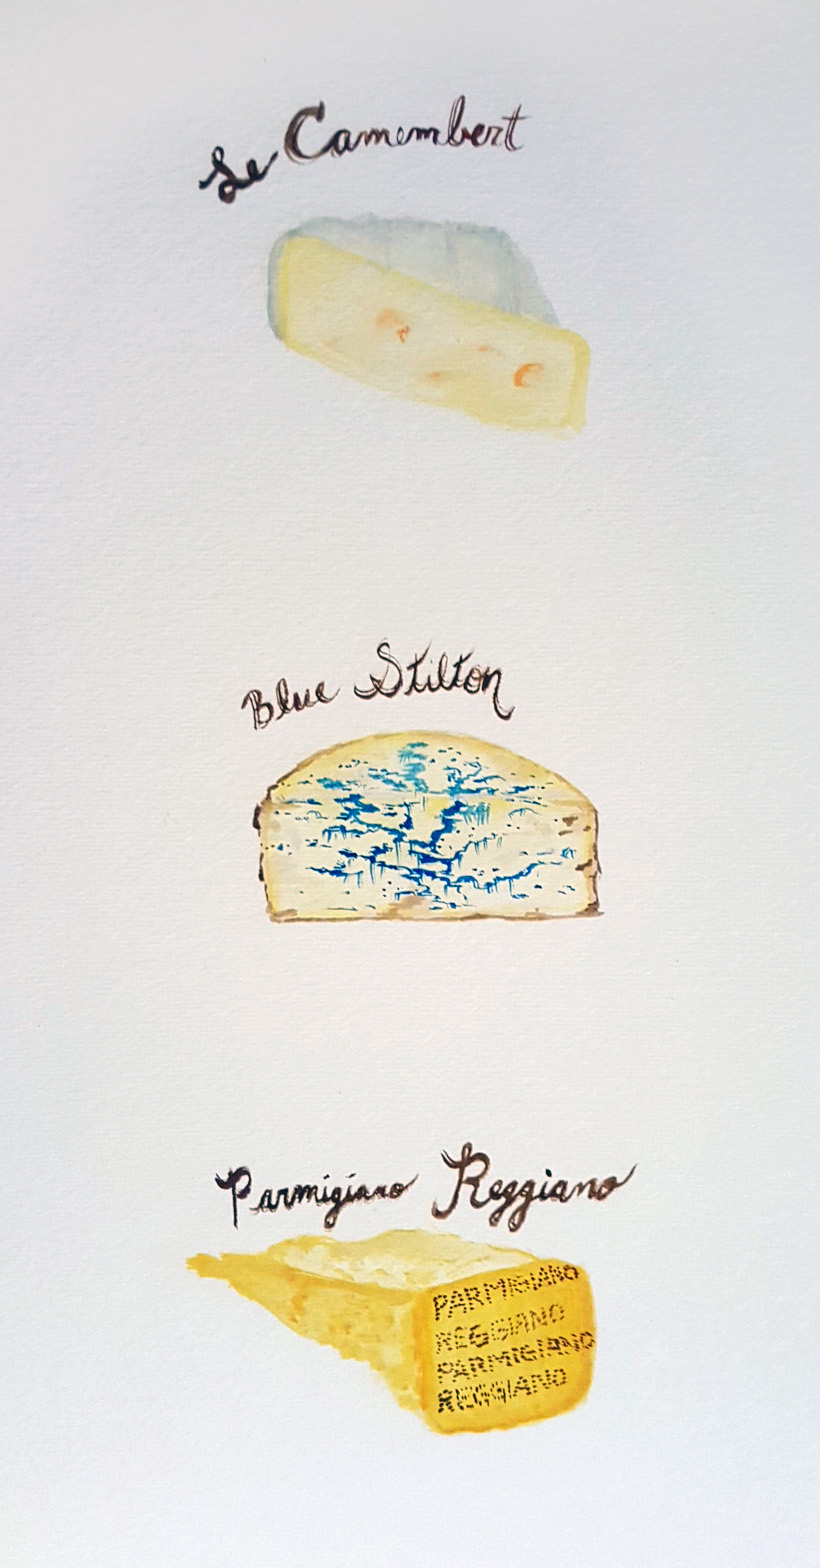 Le Camembert
Blue Stilton
Parmigiano Reggiano
PARMIGIANO
REGGIANO
PARMIGIANO
REGGIANO